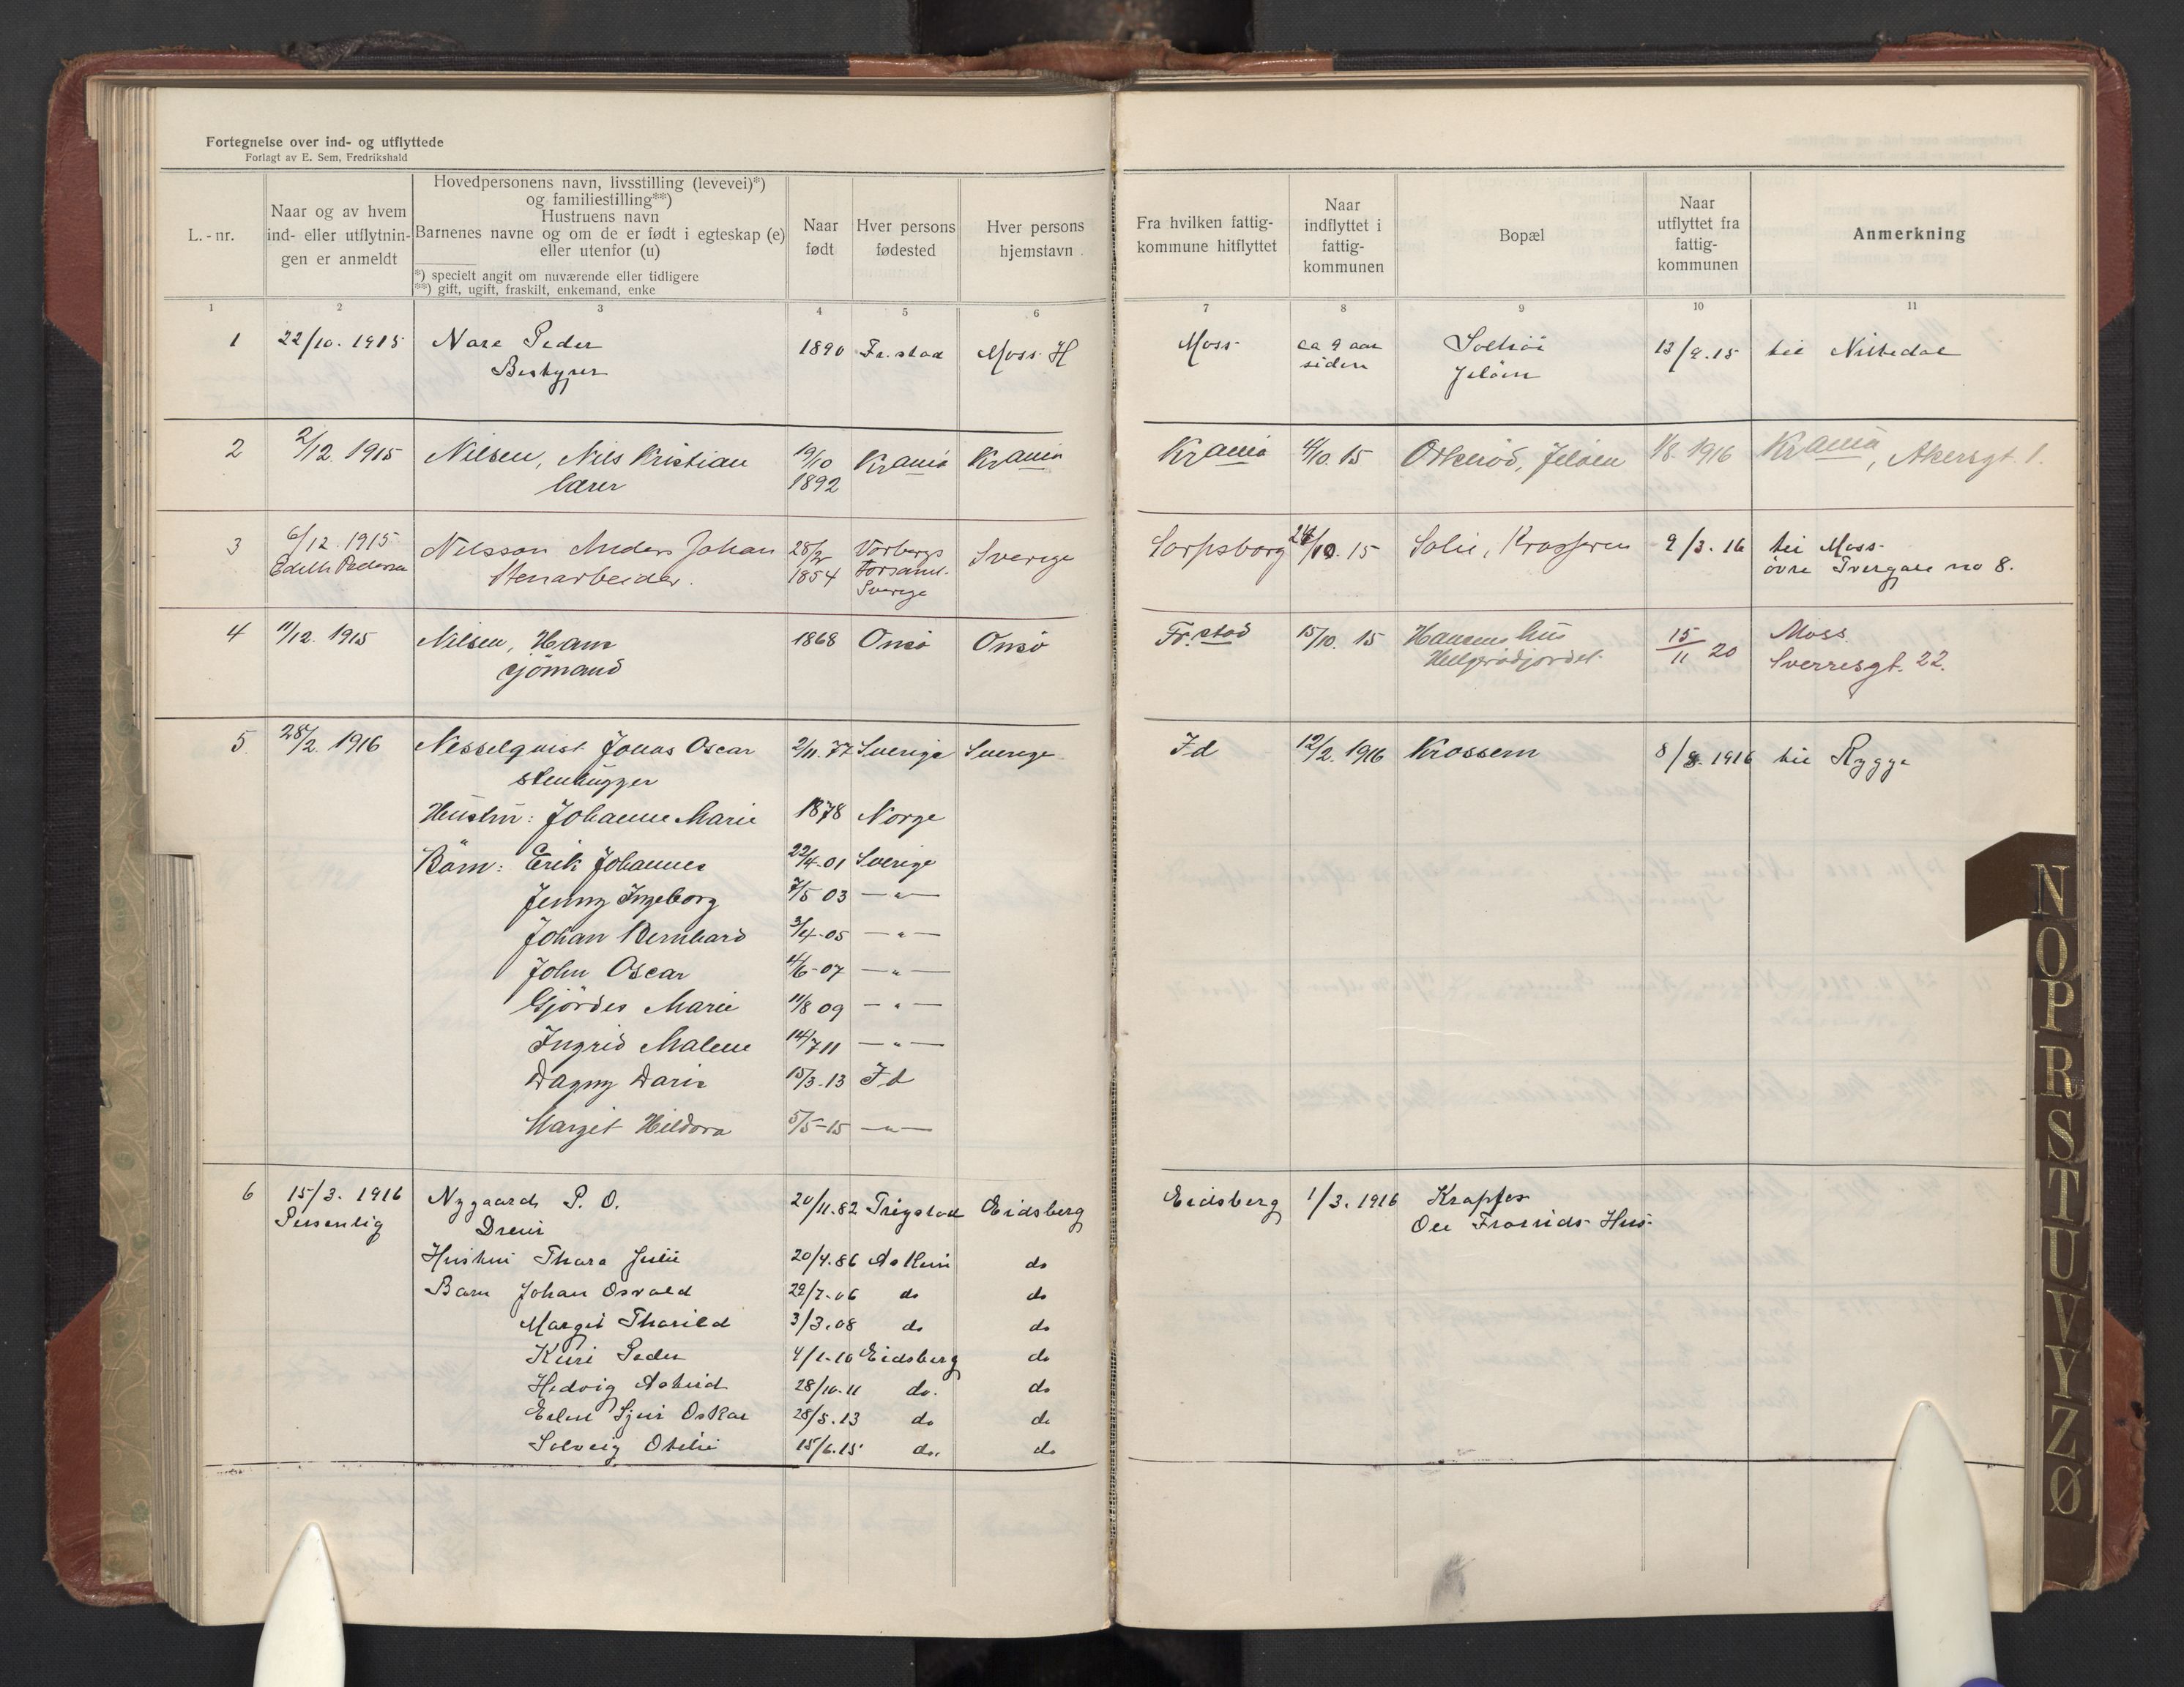 Fortegnelse over ind- og utflyttede
Forlagt av E. Sem, Fredrikshald
L.-nr.
Naar og av hvem
ind- eller utflytnin-
gen er anmeldt
Hovedpersonens navn, livsstilling (levevei)*)
og familiestilling**)
Hustruens navn
Barnenes navne og om de er født i egteskap (e)
eller utenfor (u)
*) specielt angit om nuværende eller tidligere
**) gift, ugift, fraskilt, enkemand, enke
Naar
født
Hver persons
fødested
Hver persons
hjemstavn
Fra hvilken fattig-
kommune hitflyttet
Naar
indflyttet i
fattig-
kommunen
Bopæl
Naar
utflyttet fra
fattig-
kommunen
Anmerkning
1 2 3 4 5 6 7 8 9 10 11
1 22/10. 1915 Nore Peder 1890 Fr.stad Moss H Moss ca 9 aar 13/9.15 til Nittedal
Bestyrer siden Jeløen
2 2/12. 1915 Nilsen, Nils Kristian 19/10 Krania Krania Krania /10.15 Orkerød, Jeløen 1/8. 1916 Krania, Akersgt. 1.
lærer 1892
3 6/12. 1915 Nilsson Anders Johan 28/2 Vorbergs Sverige Sarpsborg 24/10. 15 Solli, Krosseren 9/3. 16 til Moss
Edith Pedersen Stenarbeider. 1854 Forsaml. øvre Tvergate no 8.
Sverige
4 11/12. 1915 Nilsen, Hans 1868 Onsö Onsö Fr.stad 15/10. 15 Hansens hus 15/11 20 Moss.
sjömand Helgerödjordet. Sverresgt. 22.
5. 28/2. 1916 Nesselquist Jonas Oscar 2/11. 77 Sverige Sverige Id 12/2. 1916 Krossern 8/8. 1916 til Rygge
stenhugger
Hustru: Johanne Marie 1878 Norge
Børn: Erik Johannes 22/4-01 Sverige
Jenny Ingeborg 7/5 03 — " —
Johan Bernhard 3/4-05 — " —
John Oscar /6-07 — " —
Gjördis Marie 11/8 09 — " —
Ingrid Malene 14/7 11 — " —
Dagny Daria 15/3-13 Id
Margit Hildora 5/5-15 — " —
6 15/3. 1916 Nygaard P. O. 20/11.82 Trygstad Eidsberg Eidsberg 1/3. 1916 Krapfos
Personlig Dreier Ole Hus
Hustru Thora Julie 20/4.86 Askim do
Barn Johan Osvald 22/7-06 do do
Margit Thorild 3/3.08 do do
Peder 4/1-10 Eidsberg do
Hedvig Astrid 28/10-11 do. do
Oskar 28/5.13 do do
Solveig Otilie 15/6.15 do. do
N
O
P
R
S
T
U
V
Y
Z
Ø